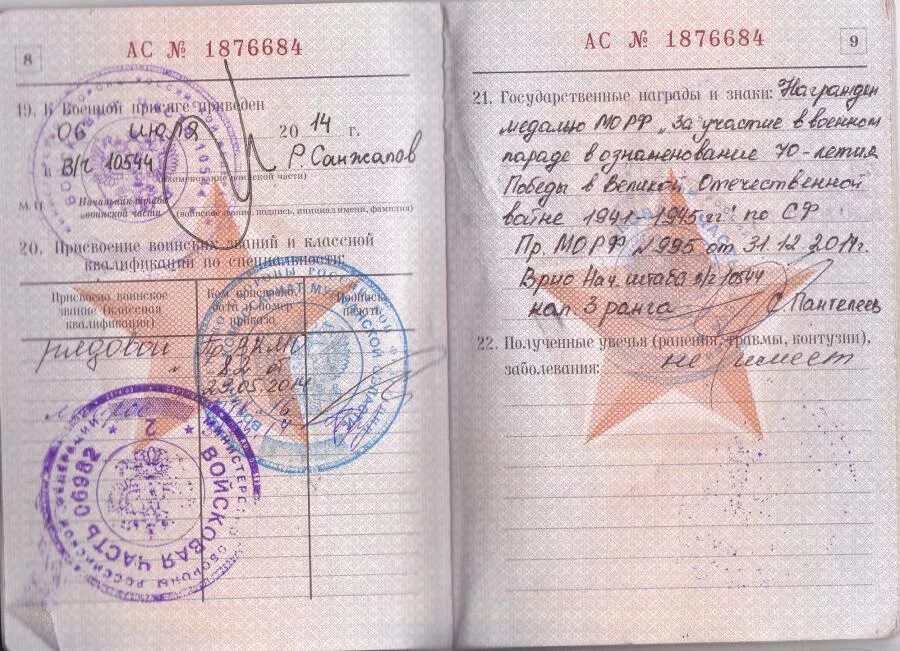 8
АС № 1876684
19. К Военной присяге приведен
06 июля 2014 г.
в В/Ч 10544 Р. Санжапов
(наименование воинской части)
М.П. Начальник штаба
воинской части (воинское звание, подпись, инициал имени, фамилия)
20. Присвоение воинских званий и классной
квалификации по специальности:
Присвоено воинское
звание (классная
квалификация)
Кем присвоено,
дата и номер
приказа
Подпись,
печать
рядовой
29.05.2014
ВОЙСКОВАЯ ЧАСТЬ 06982
МИНИСТЕРСТВО ОБОРОНЫ РОССИЙСКОЙ ФЕДЕРАЦИИ
2
АС № 1876684
9
21. Государственные награды и знаки: Награжден
медалью МОРФ „За участие в военном
параде в ознаменование 70-летия
Победы в Великой Отечественной
войне 1941-1945 гг" по СФ
Пр. МОРФ №995 от 31.12.2014г.
Врио Нач. штаба в/ч 10544
кап. 3 ранга С. Пантелеев
22. Полученные увечья (ранения, травмы, контузии),
заболевания: не имеет